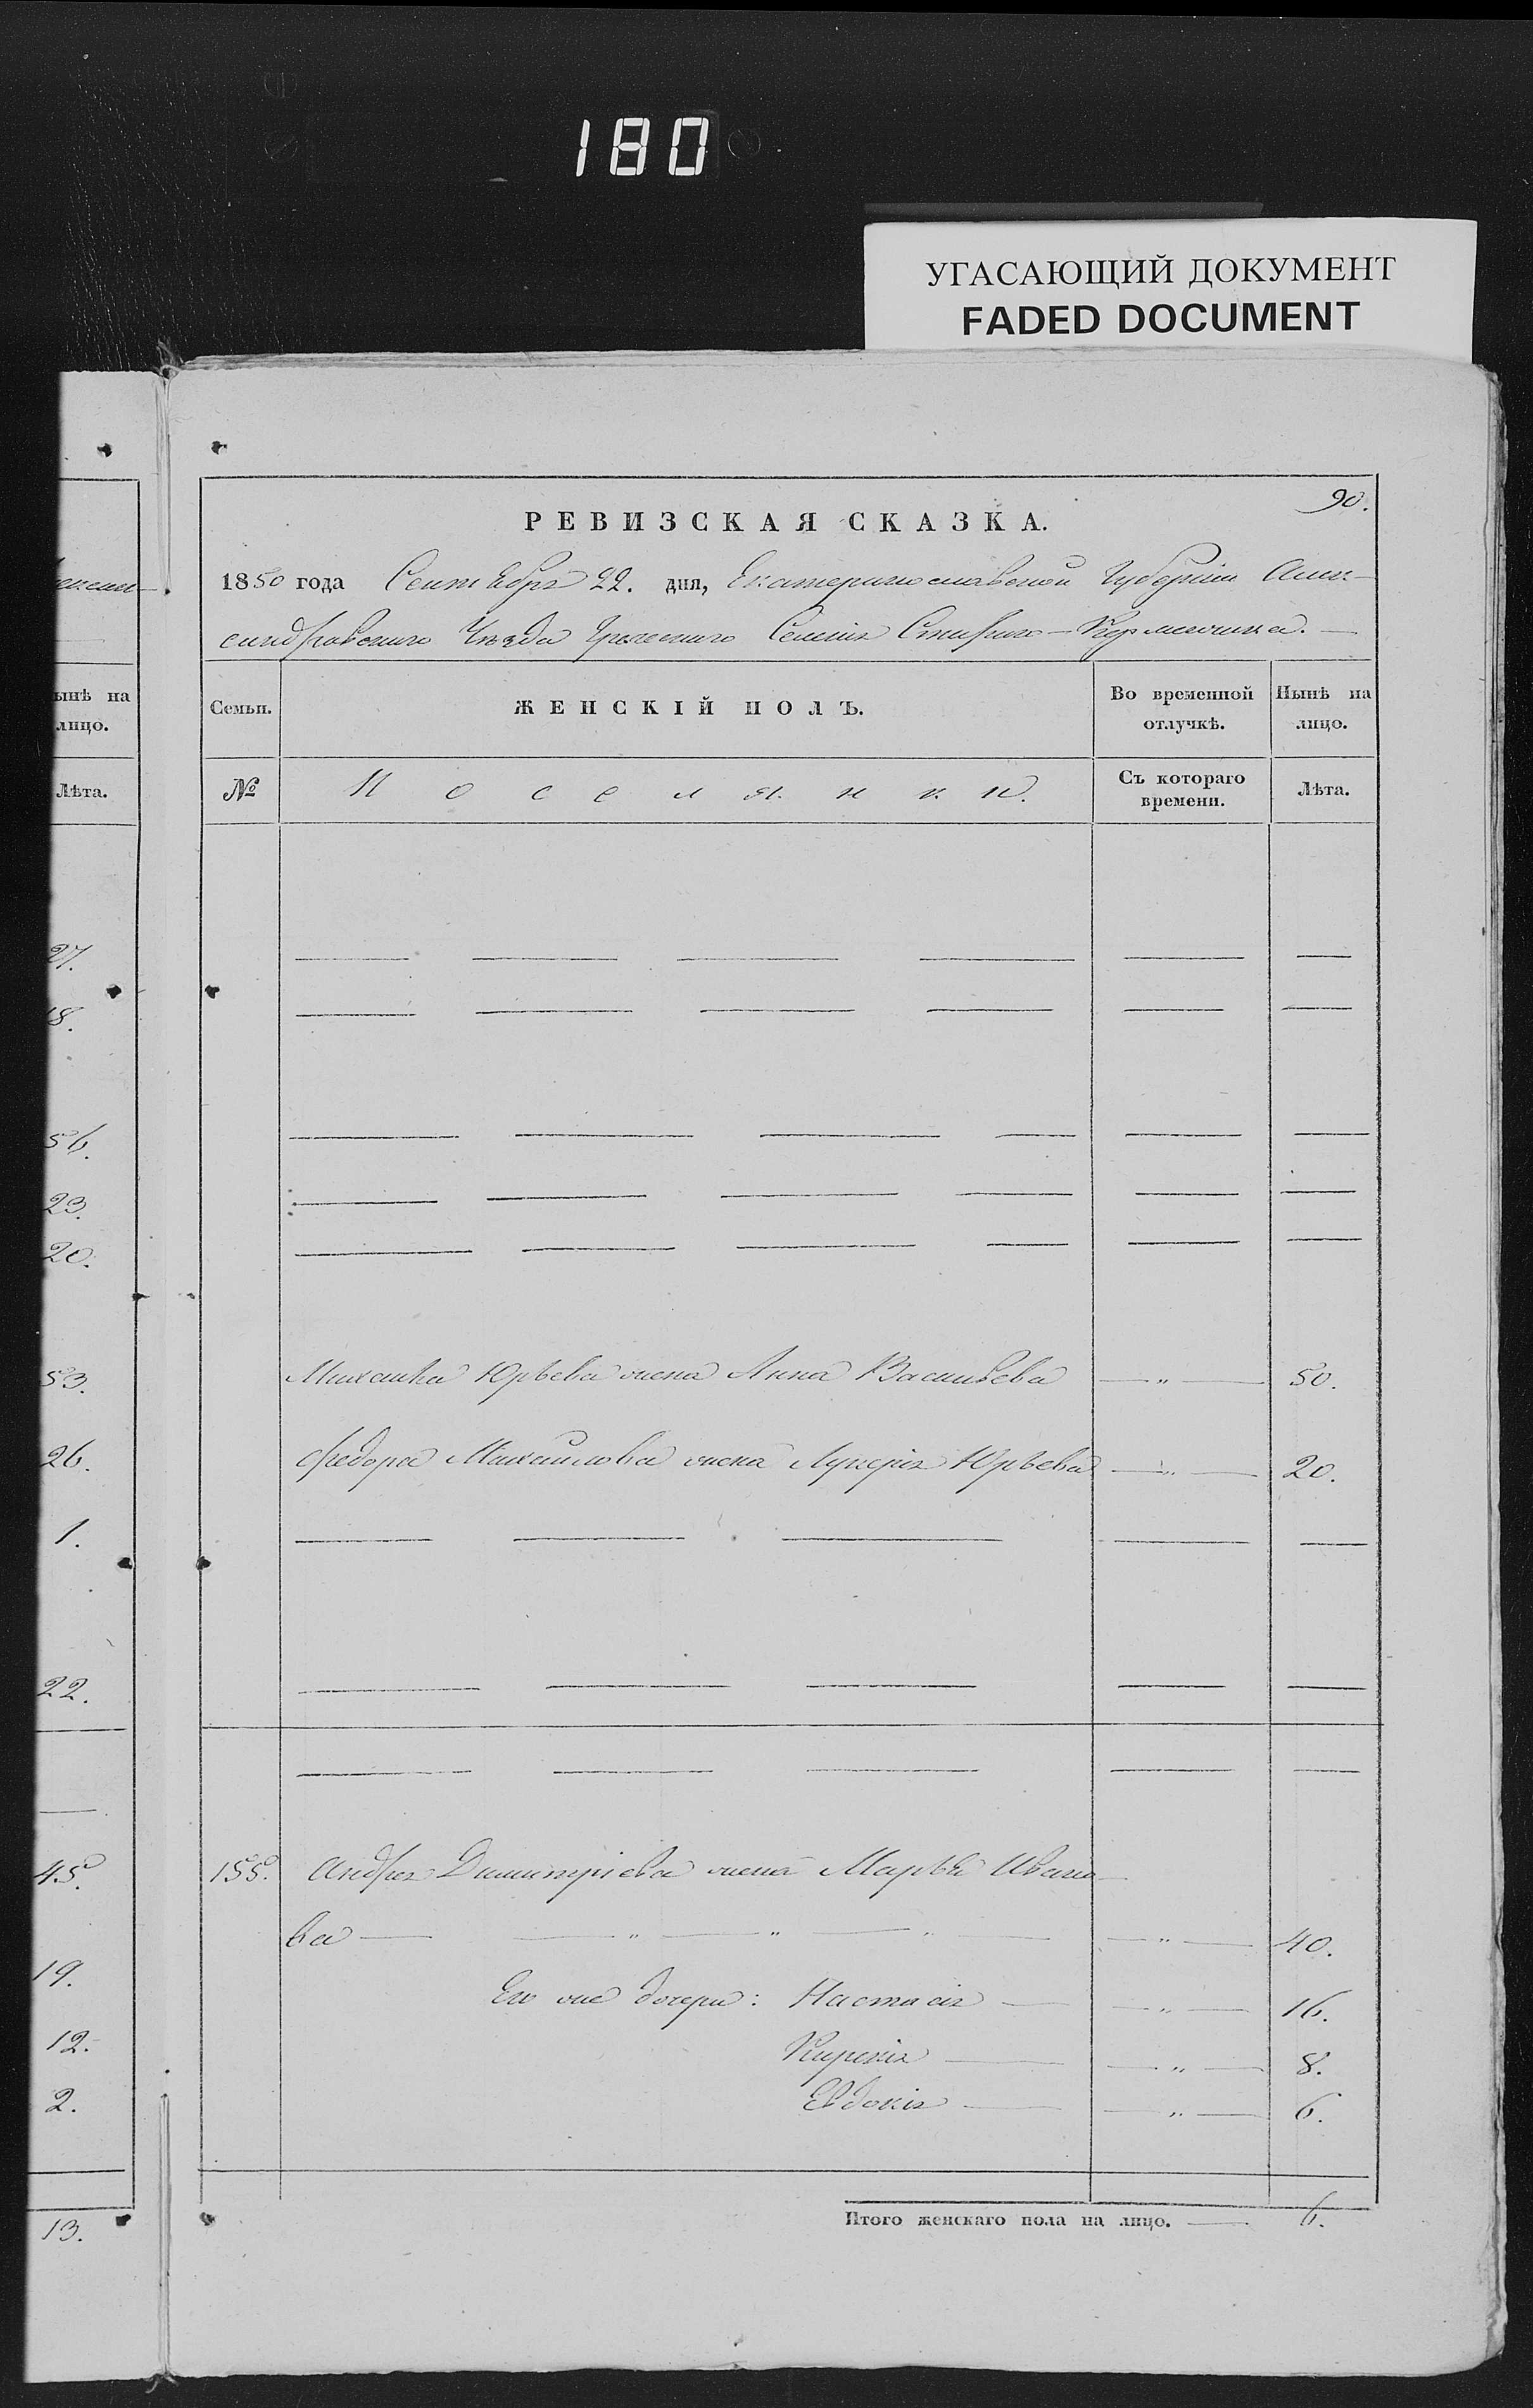 180
УГАСАЮЩИЙ ДОКУМЕНТ
FADED DOCUMENT
90.
РЕВИЗСКАЯ СКАЗКА.
1850 года Сентября 22. дня, Екатеринославской Губерніи Алек-
сандровскаго Уѣзда Греческаго Селенія Стараго-Керменчика.
ынѣ на
лицо.
Лѣта.
27.
18.
56.
23.
20.
53.
26.
1.
22.
45.
19.
12.
2.
13.
Семьи.
ЖЕНСКІЙ ПОЛЪ.
Во временной
отлучкѣ.
Нынѣ на
лицо.
№
Поселянки.
Съ котораго
времени.
Лѣта.
Михаила Юрьева жена Анна Васильева — „ — 50.
Федора Михайлова жена Лукерія Юрьева — „ — 20.
155. Андрея Димитріева жена Марья Ивано-
ва — „ — „ — „ — — „ — 40.
Его же дочери: Настасія — — „ — 16.
Кирекія — — „ — 8.
Евдокія — — „ — 6.
Итого женскаго пола на лицо. — 6.